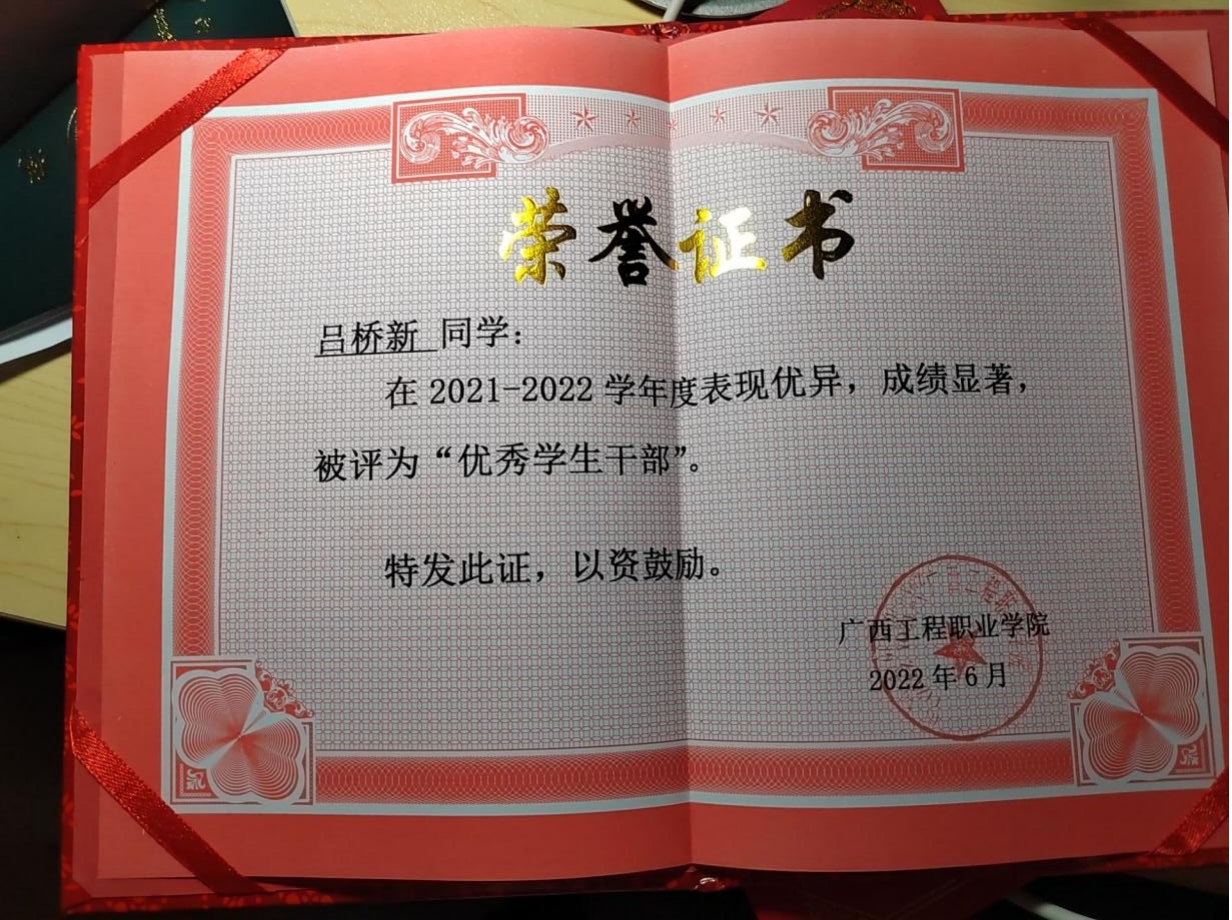 荣誉证书
吕桥新 同学：
在 2021-2022 学年度表现优异，成绩显著，
被评为“优秀学生干部”。
特发此证，以资鼓励。
广西工程职业学院
2022 年 6 月